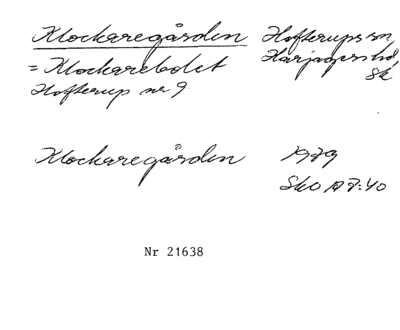 Klockaregården Hofterups sn
= Klockarebolet Harjagers hd,
Hofterup nr 9 Sk
Klockaregården 1979
Sko A 7:40
Nr 21638